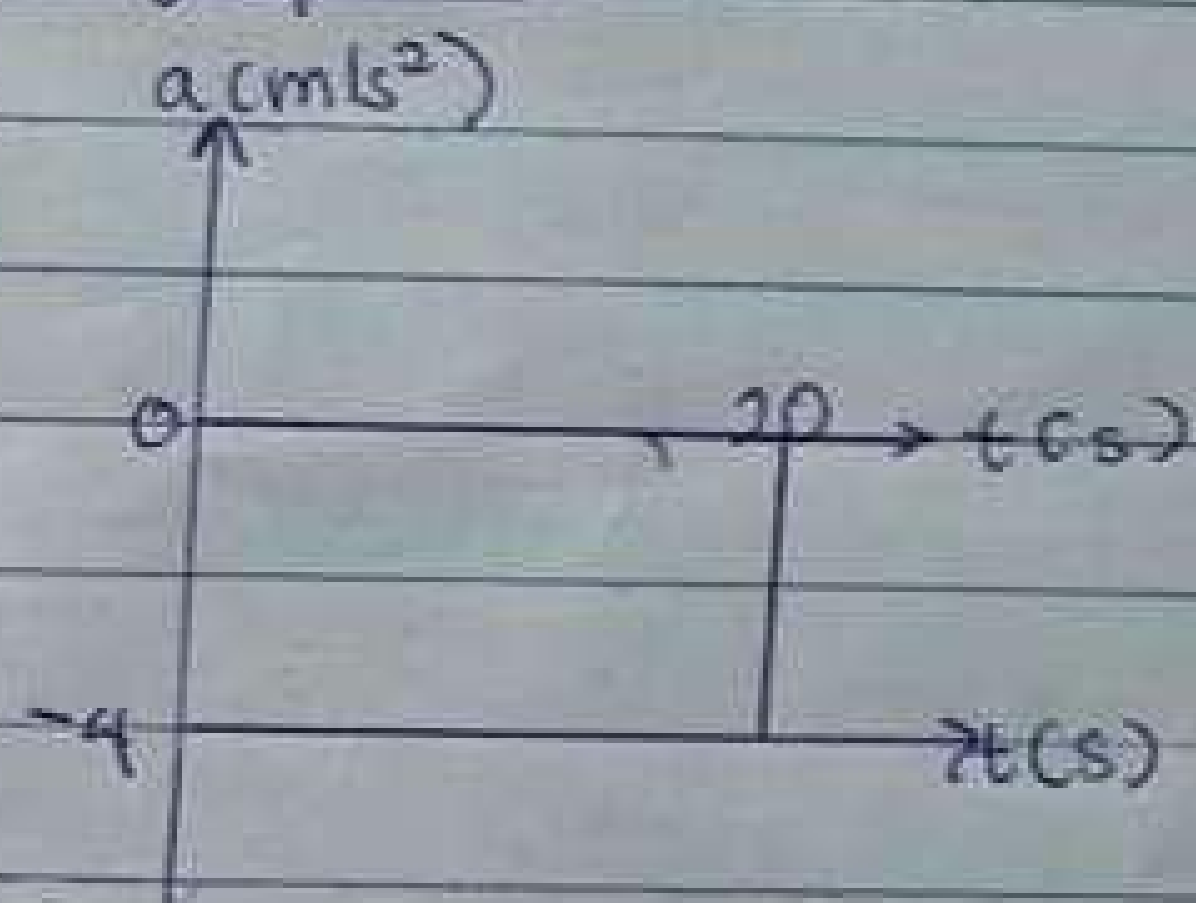 a (m/s²)
0 20 t(s)
-4 t(s)